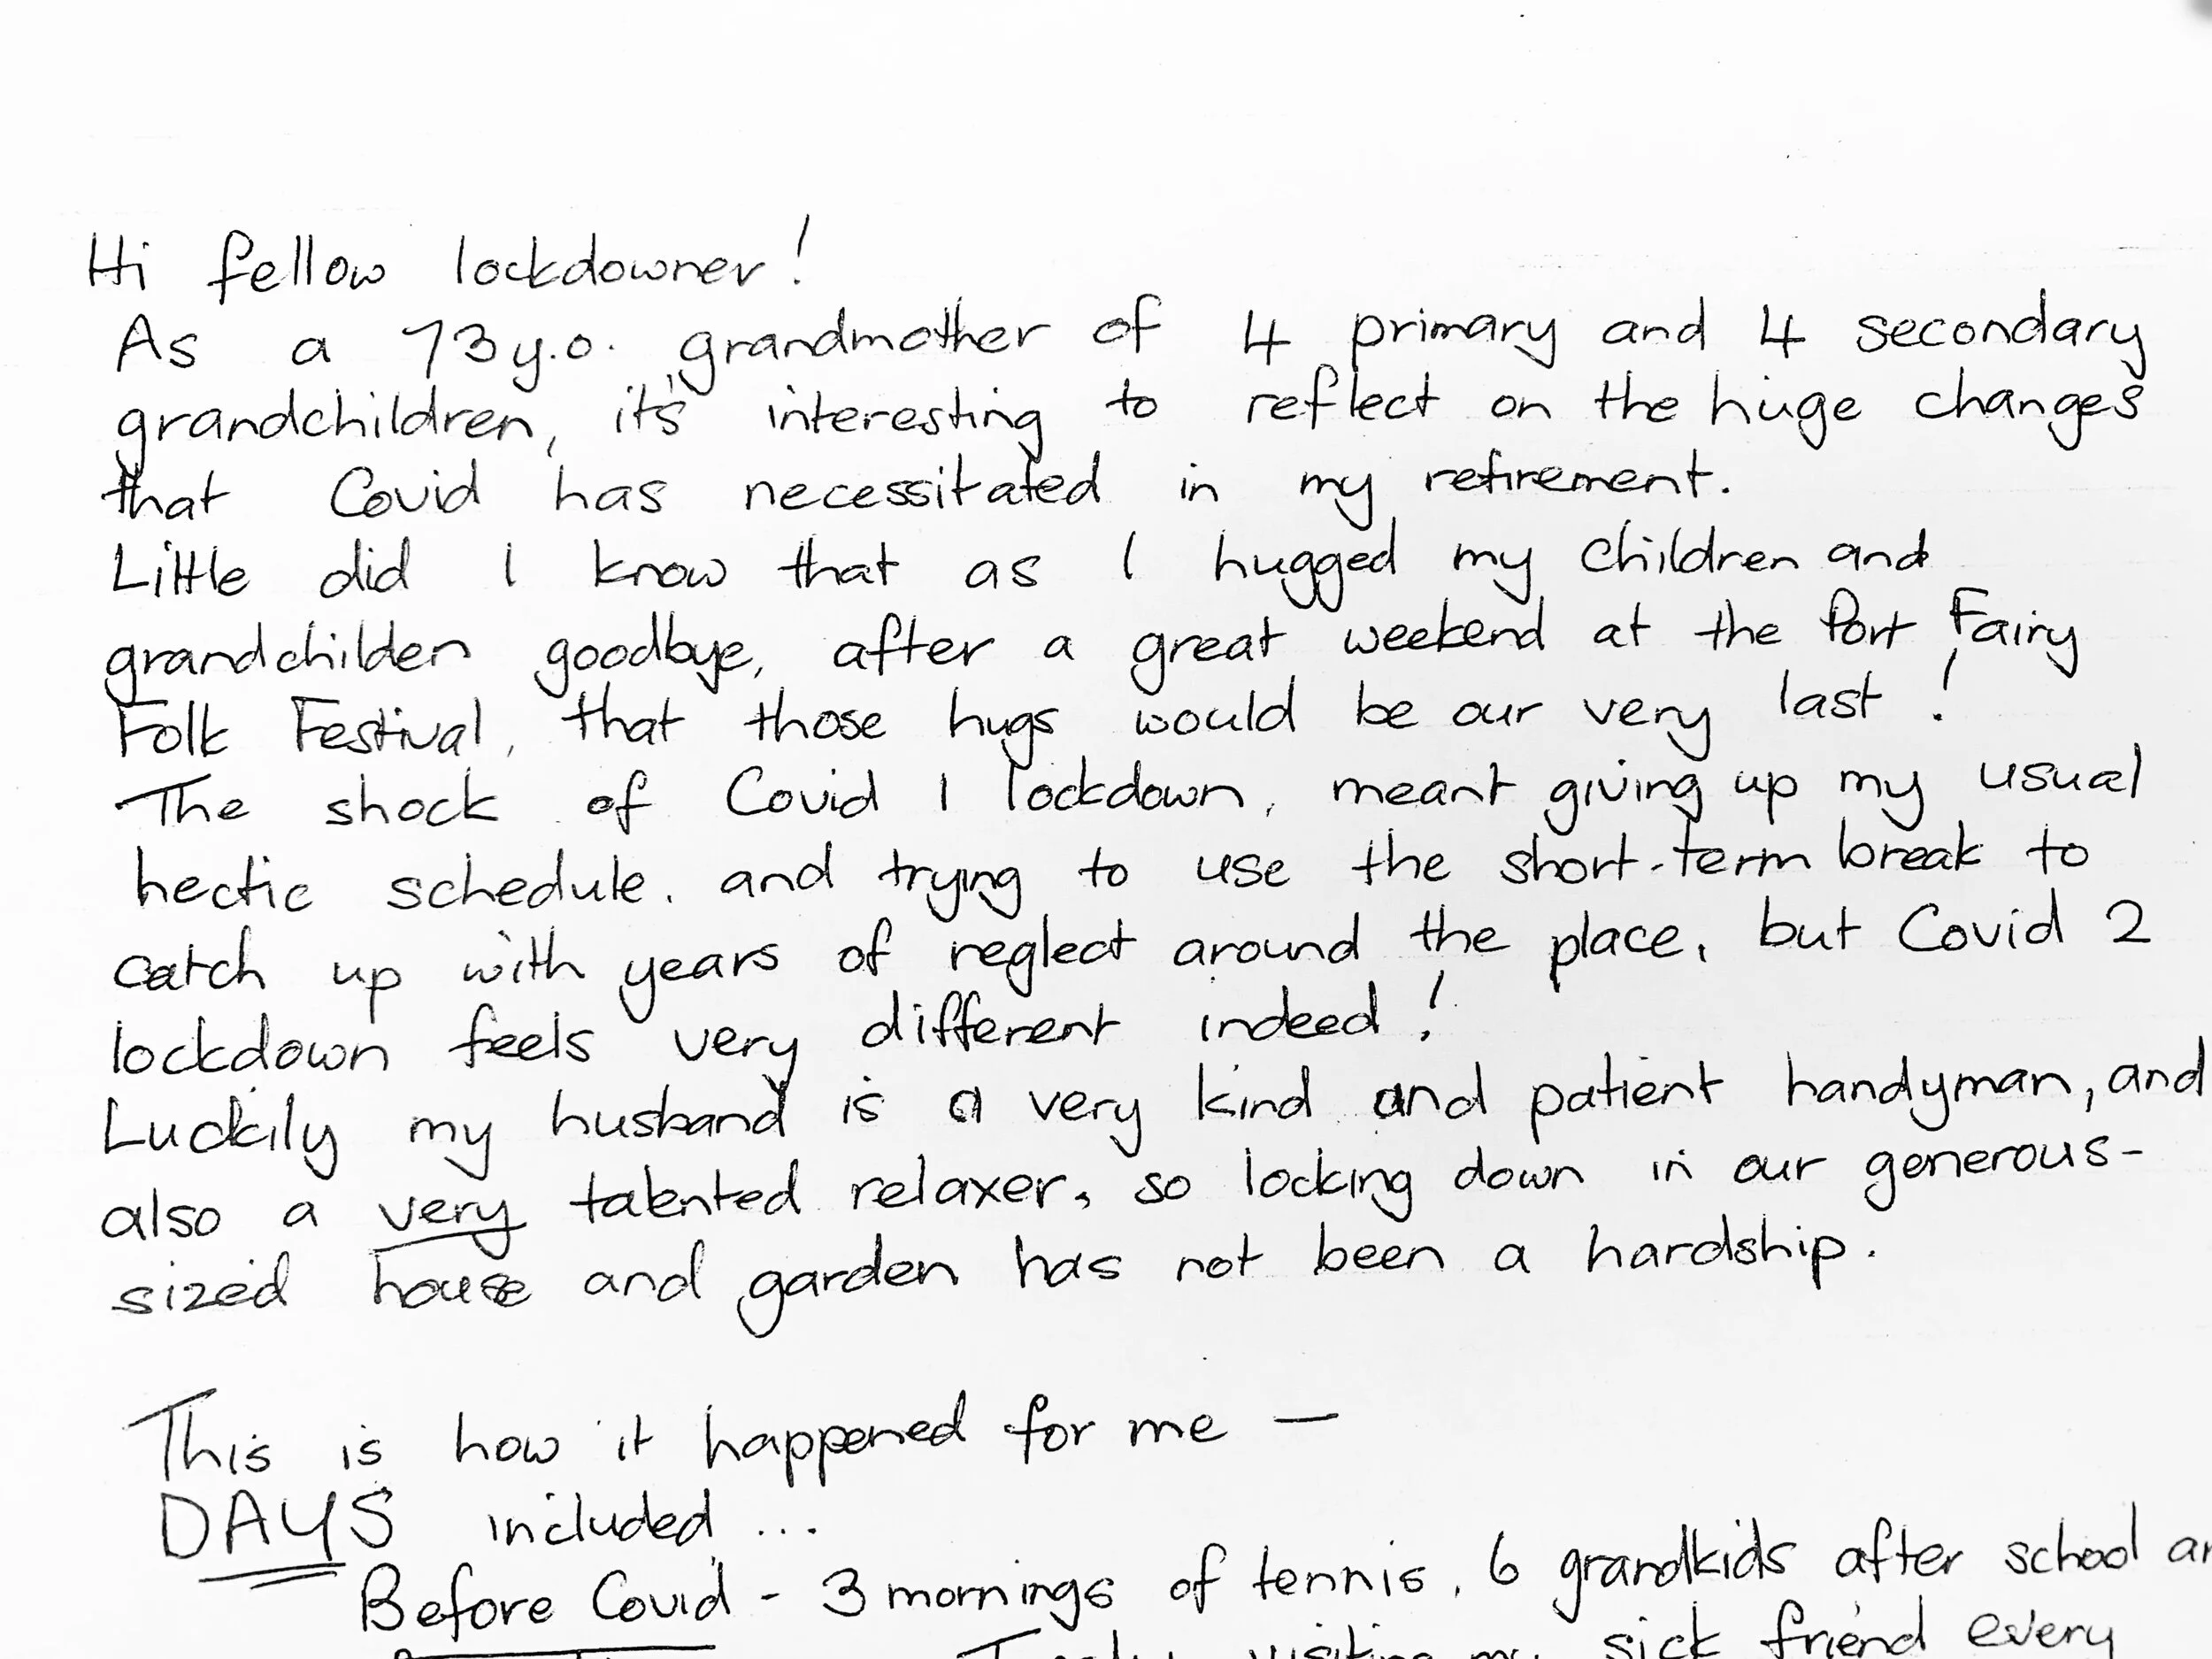 Hi fellow lockdowner!
As a 73y.o. grandmother of 4 primary and 4 secondary
grandchildren, it's interesting to reflect on the huge changes
that Covid has necessitated in my retirement.
Little did I know that as I hugged my children and
grandchilden goodbye, after a great weekend at the Port Fairy
Folk Festival, that those hugs would be our very last!
The shock of Covid 1 lockdown, meant giving up my usual
hectic schedule. and trying to use the short-term break to
catch up with years of neglect around the place, but Covid 2
lockdown feels very different indeed!
Luckily my husband is a very kind and patient handyman, and
also a very talented relaxer, so locking down in our generous-
sized house and garden has not been a hardship.
This is how it happened for me —
DAYS included ...
Before Covid - 3 mornings of tennis, 6 grandkids after school
visiting my sick friend every